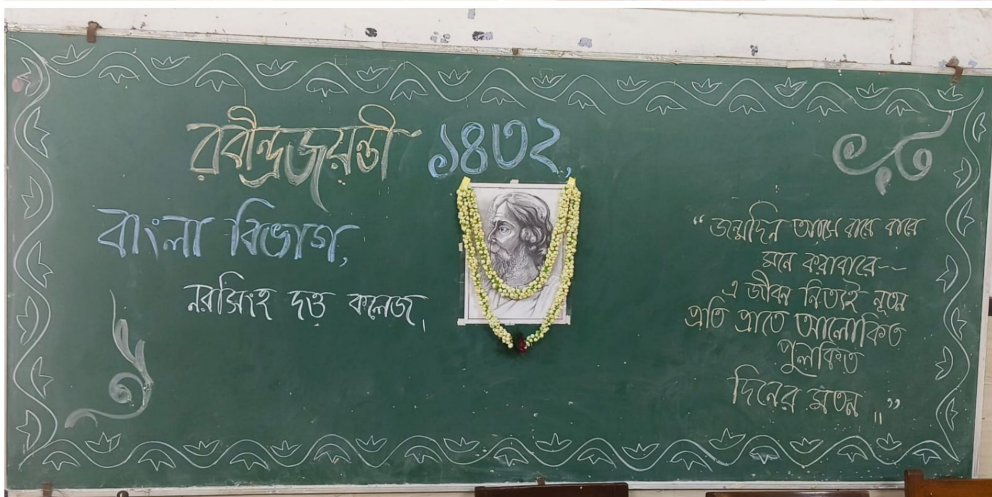 রবীন্দ্রজয়ন্তী ১৪৩২,
বাংলা বিভাগ,
নরসিংহ দত্ত কলেজ,
“জন্মদিন আসে বারে বারে
মনে করাবারে--
এ জীবন নিত্যই নূতন
প্রতি প্রাতে আলোকিত
পুলকিত
দিনের মতন॥”